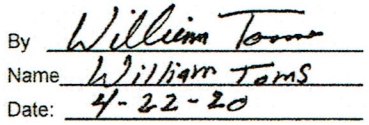 By William Toms
Name William Toms
Date: 4-22-20